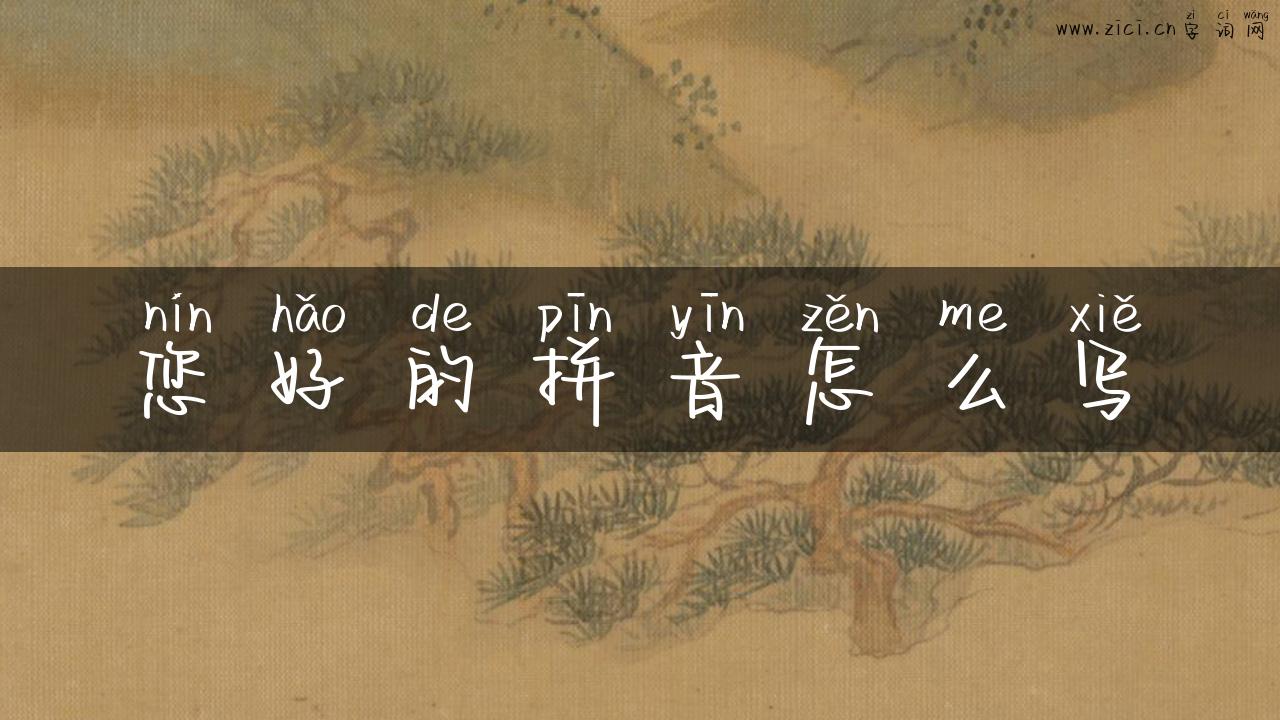 zì cí wǎng
www.zici.cn 字词网
nín hǎo de pīn yīn zěn me xiě
您好的拼音怎么写